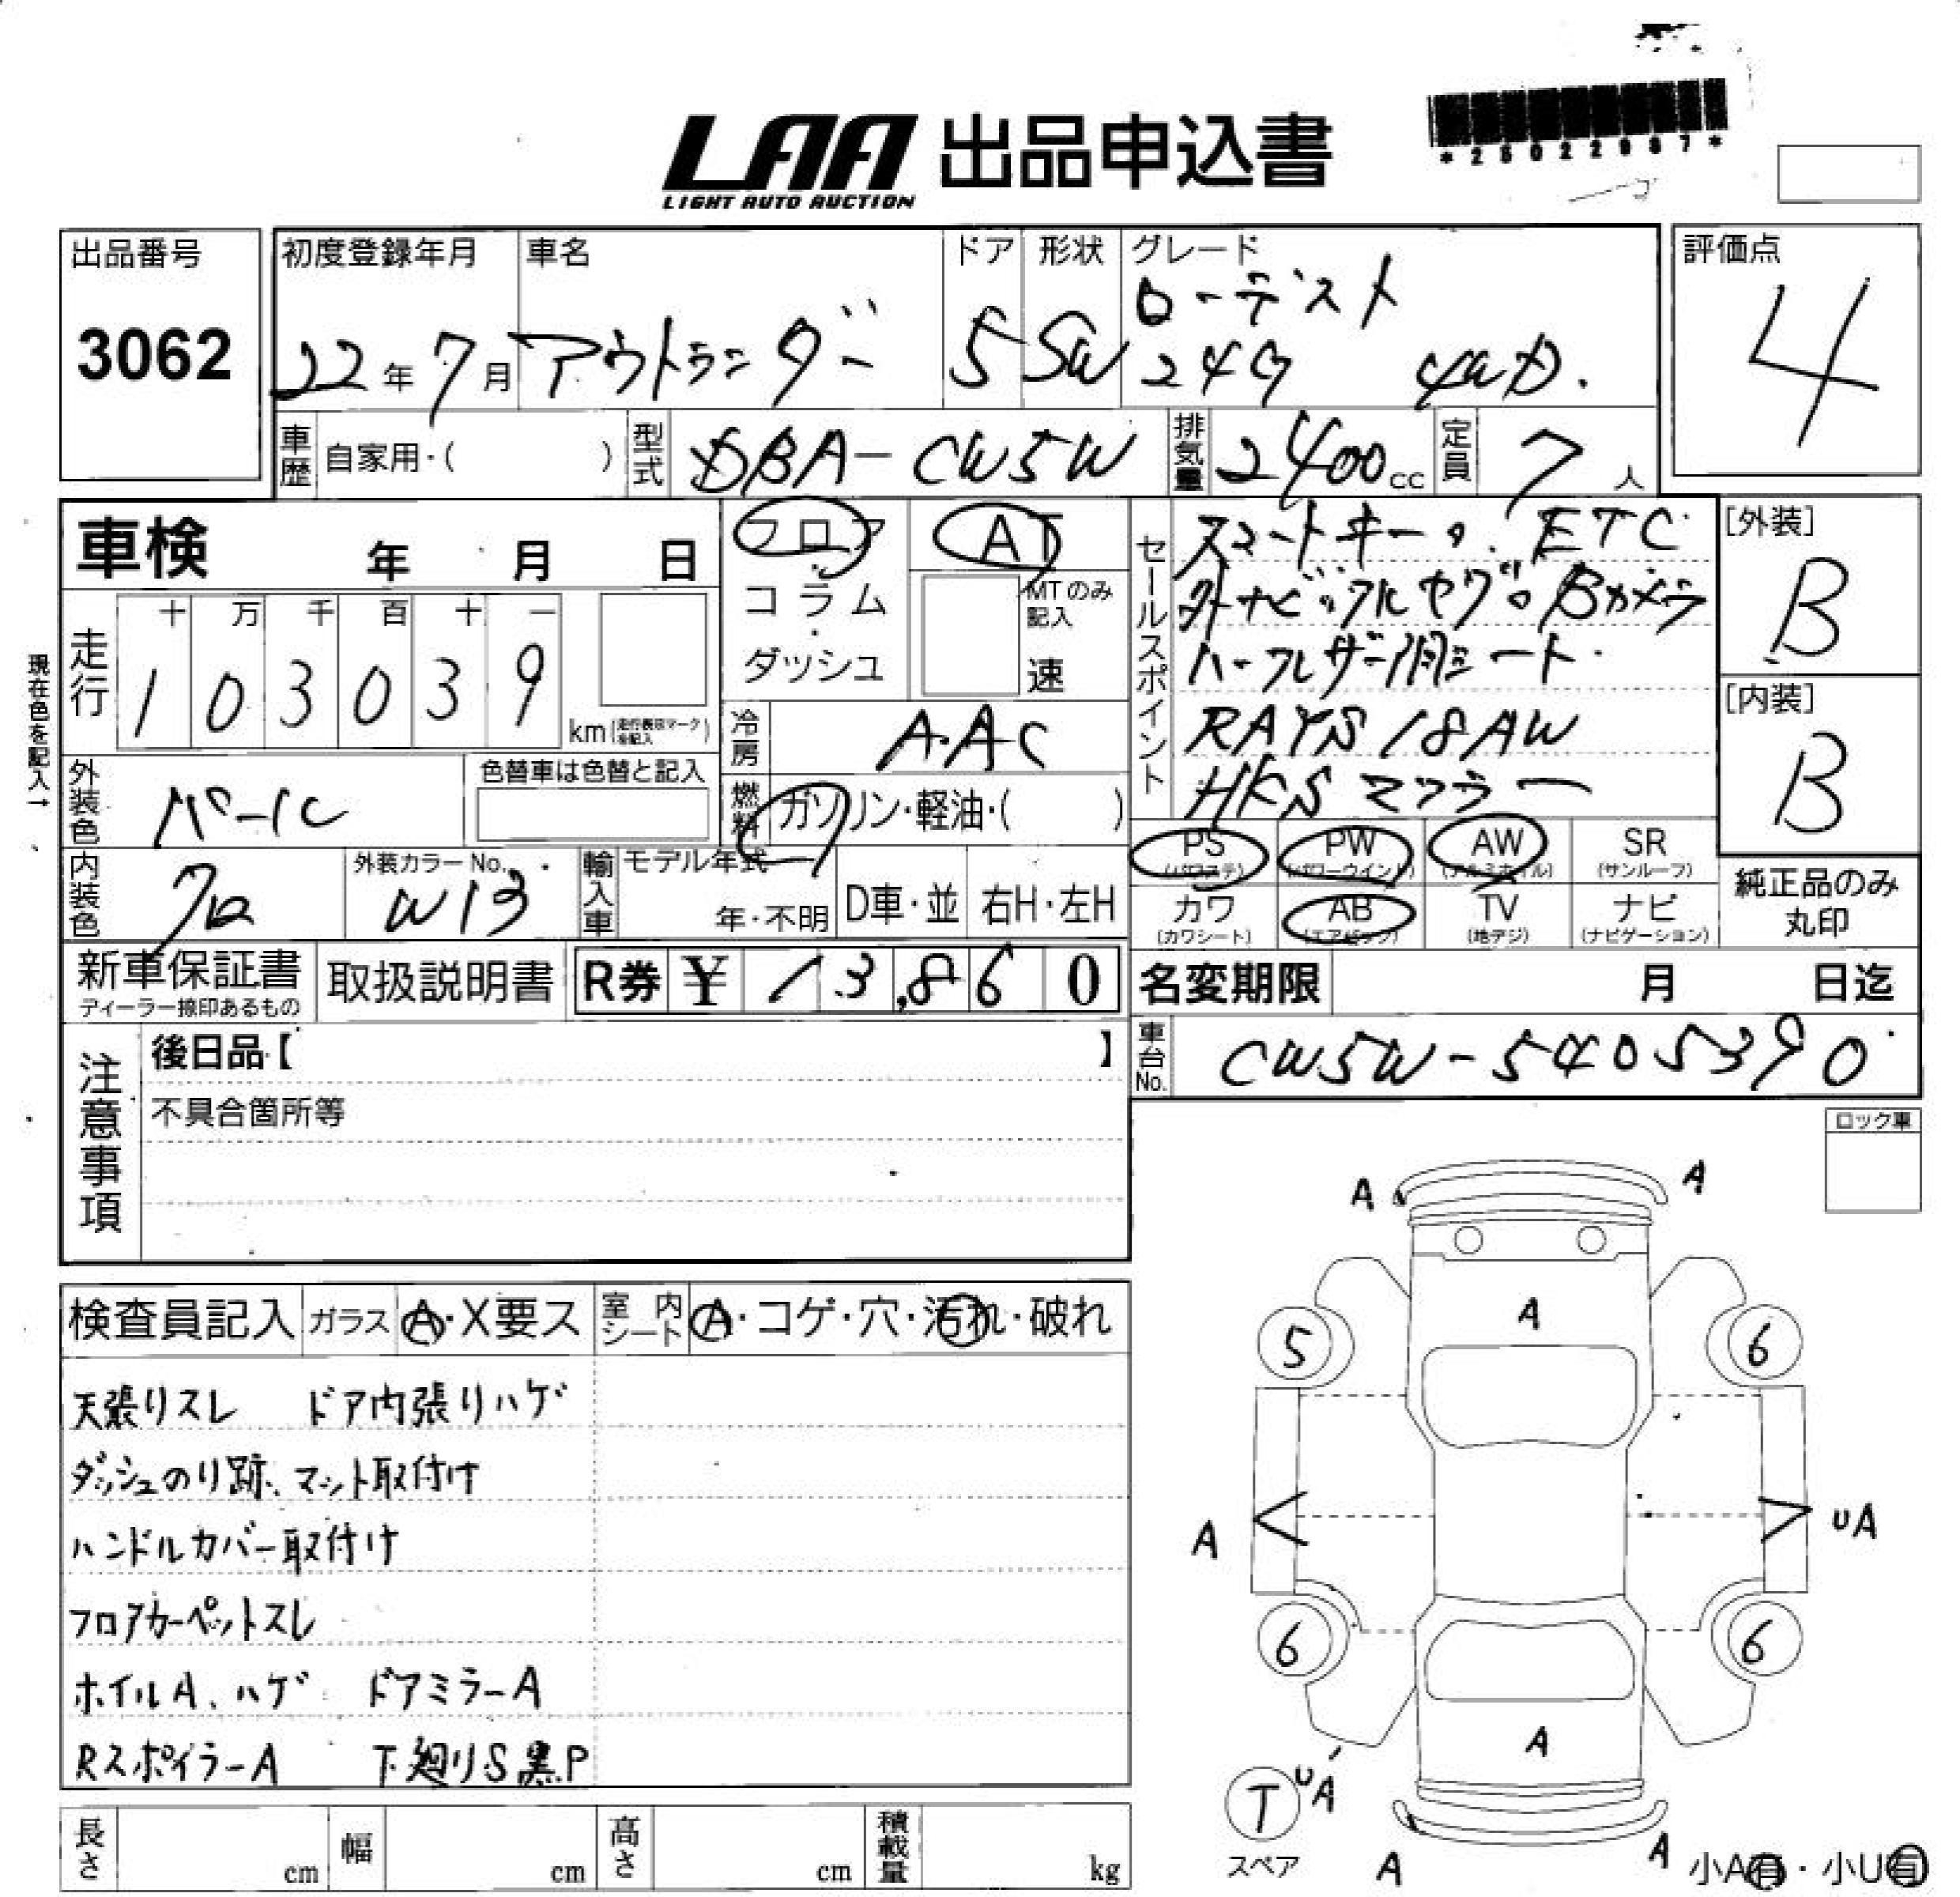 *25022987*
LAA 出品申込書
LIGHT AUTO AUCTION
出品番号
3062
初度登録年月
22年7月
車名
アウトランダー
ドア
5
形状
SW
グレード
ローデスト
24G 4WD.
評価点
4
車歴 自家用・( )
型式 DBA-CW5W
排気量 2400cc
定員 7人
車検 年 月 日
フロア
コラム
ダッシュ
AT
MTのみ記入
速
セールスポイント
スマートキー。ETC
外ナビ。フルセグ。Bカメラ
ハーフレザー調シート.
RAYS 18AW
HKSマフラー
[外装]
B
[内装]
B
現在色を記入→
走行
十 万 千 百 十 一
1 0 3 0 3 9
km(走行表示マークを記入)
冷房 A.AC
外装色 パール
色替車は色替と記入
燃料 ガソリン・軽油・( )
内装色 クロ
外装カラーNo.
W13
輸入車
モデル年式
年・不明
D車・並
右H・左H
PS (パワステ)
PW (パワーウインド)
AW (アルミホイル)
SR (サンルーフ)
カワ (カワシート)
AB (エアバック)
TV (地デジ)
ナビ (ナビゲーション)
純正品のみ
丸印
新車保証書
ディーラー捺印あるもの
取扱説明書
R券 ¥ 13,860
名変期限 月 日迄
車台No. CW5W-5405390
注意事項
後日品【 】
不具合箇所等
ロック車
検査員記入
ガラス A・X要ス
室内シート A・コゲ・穴・汚れ・破れ
天張りスレ ドア内張りハゲ
ダッシュのり跡、マット取付け
ハンドルカバー取付け
フロアカーペットスレ
ホイルA、ハゲ ドアミラーA
RスポイラーA 下廻りS黒P
A A
A
5 6
A UA
6 6
A
T UA
スペア
A A
小A有・小U有
長さ cm
幅 cm
高さ cm
積載量 kg